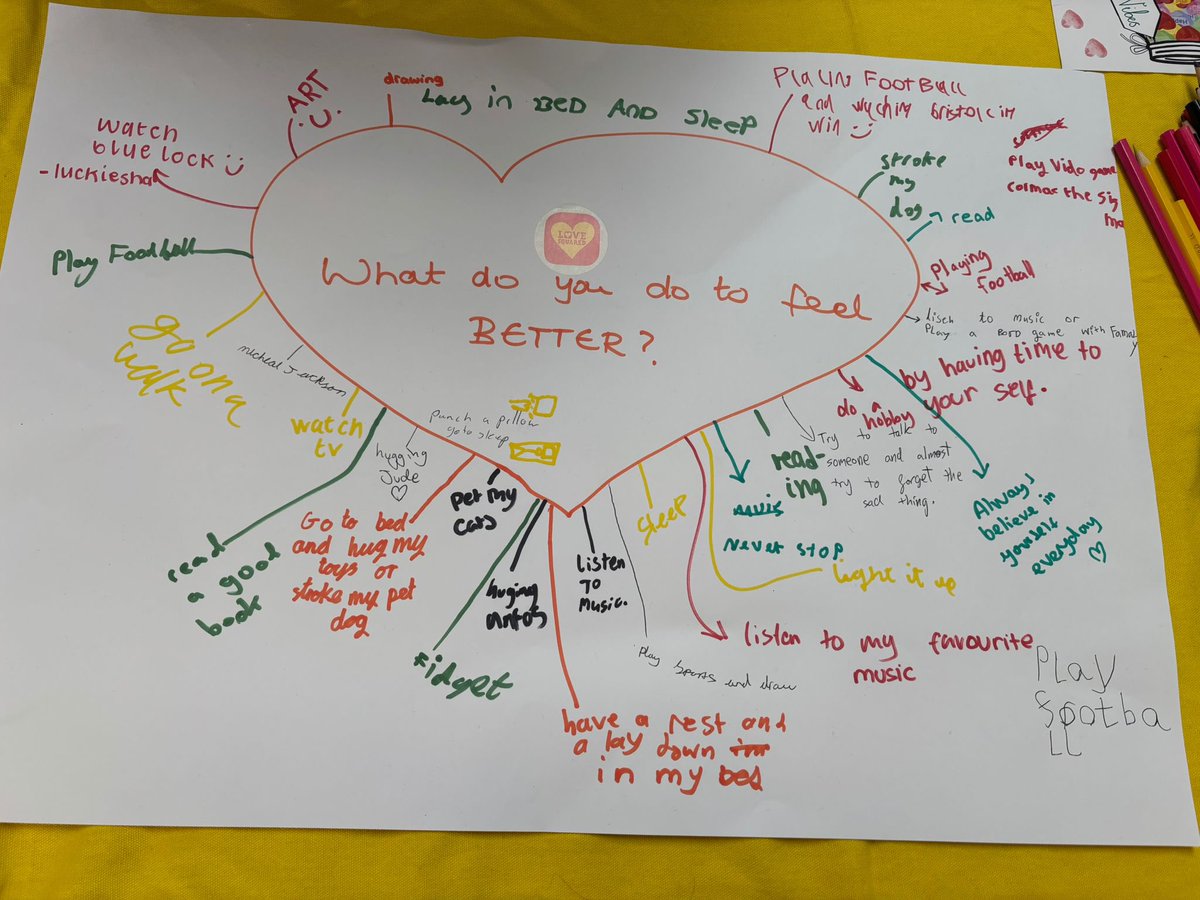 What do you do to feel
BETTER?
LOVE
SQUARED
Vibes
watch
blue lock
-luckiesha
ART
drawing
Lay in BED AND Sleep
PLAYING FOOTBALL
and
win
stroke
my
dog
read
Play Vido game
playing
football
Lisen to music or
Play a Bord game with Famaly
by having time to
your self.
do a
hobby
Always
believe in
yourself
everyday
Try to talk to
someone and almost
try to forget the
sad thing.
read-
ing
Never stop
Light it up
listen to my favourite
music
Play
Footba
ll
sleep
Play sports and draw
listen
To
Music.
have a rest and
a lay down
in my bed
huging
fidget
pet my
cats
Go to bed
and hug my
toys or
stroke my pet
dog
punch a pillow
go to sleep
hugging
Jude
read
a good
book
watch
tv
micheal Jackson
go on a
walk
Play Football